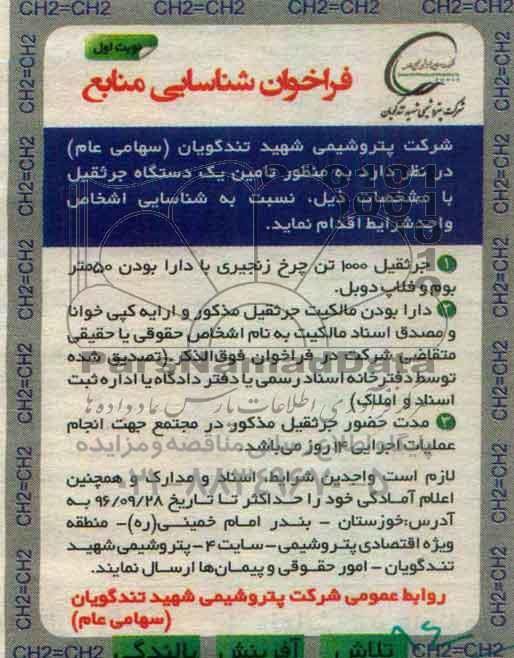 CH2=CH2 CH2=CH2 CH2=CH2 CH2=CH2
نوبت اول
فراخوان شناسایی منابع
شرکت پتروشیمی شهید تندگویان
شرکت پتروشیمی شهید تندگویان (سهامی عام)
در نظر دارد به منظور تامین یک دستگاه جرثقیل
با مشخصات ذیل، نسبت به شناسایی اشخاص
واجدشرایط اقدام نماید.
۱ جرثقیل ۱۰۰۰ تن چرخ زنجیری با دارا بودن ۵۰متر
بوم و فلاپ دوبل.
۲ دارا بودن مالکیت جرثقیل مذکور و ارایه کپی خوانا
و مصدق اسناد مالکیت به نام اشخاص حقوقی یا حقیقی
متقاضی شرکت در فراخوان فوق‌الذکر (تصدیق شده
توسط دفترخانه اسناد رسمی یا دفتر دادگاه یا اداره ثبت
اسناد و املاک)
۳ مدت حضور جرثقیل مذکور، در مجتمع جهت انجام
عملیات اجرایی ۱۴ روز می‌باشد.
لازم است واجدین شرایط، اسناد و مدارک و همچنین
اعلام آمادگی خود را حداکثر تا تاریخ ۹۶/۰۹/۲۸ به
آدرس:خوزستان - بندر امام خمینی(ره)- منطقه
ویژه اقتصادی پتروشیمی-سایت ۴-پتروشیمی شهید
تندگویان - امور حقوقی و پیمان‌ها ارسال نمایند.
روابط عمومی شرکت پتروشیمی شهید تندگویان
(سهامی عام)
تلاش آفرینش بالندگی
CH2=CH2 CH2=CH2
ParsNamadData
پایگاه اطلاع رسانی مناقصه و مزایده
۰۲۱-۸۸۳۴۹۶۷۰-۵